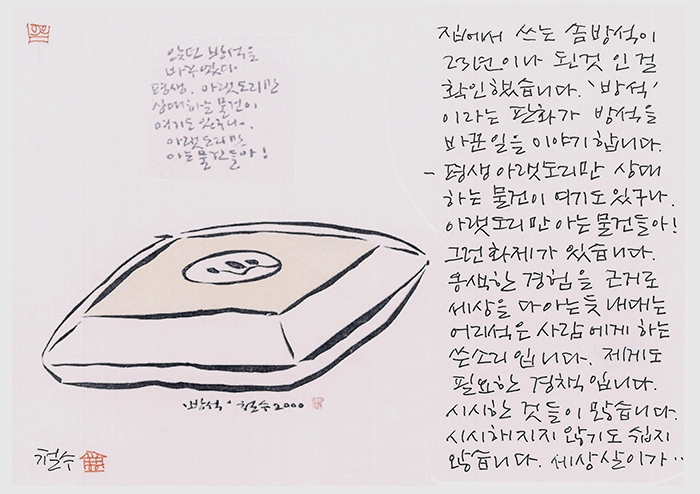 앉던 방석을
바꾸었다
평생, 아랫도리만
상대하는 물건이
여기도 있구나.
아랫도리만
아는 물건들아!
'방석' 철수 2000
철수
집에서 쓰는 솜방석이
23년이나 된것 인 걸
확인했습니다. '방석'
이라는 판화가 방석을
바꾼일을 이야기 합니다.
- 평생 아랫도리만 상대
하는 물건이 여기도 있구나.
아랫도리만 아는 물건들아!
그런 화제가 있습니다.
옹색한 경험을 근거로
세상을 다 아는듯 내대는
어리석은 사람에게 하는
쓴소리 입니다. 제게도
필요한 경책입니다.
시시한 것들이 많습니다.
시시해지지 않기도 쉽지
않습니다. 세상살이가··